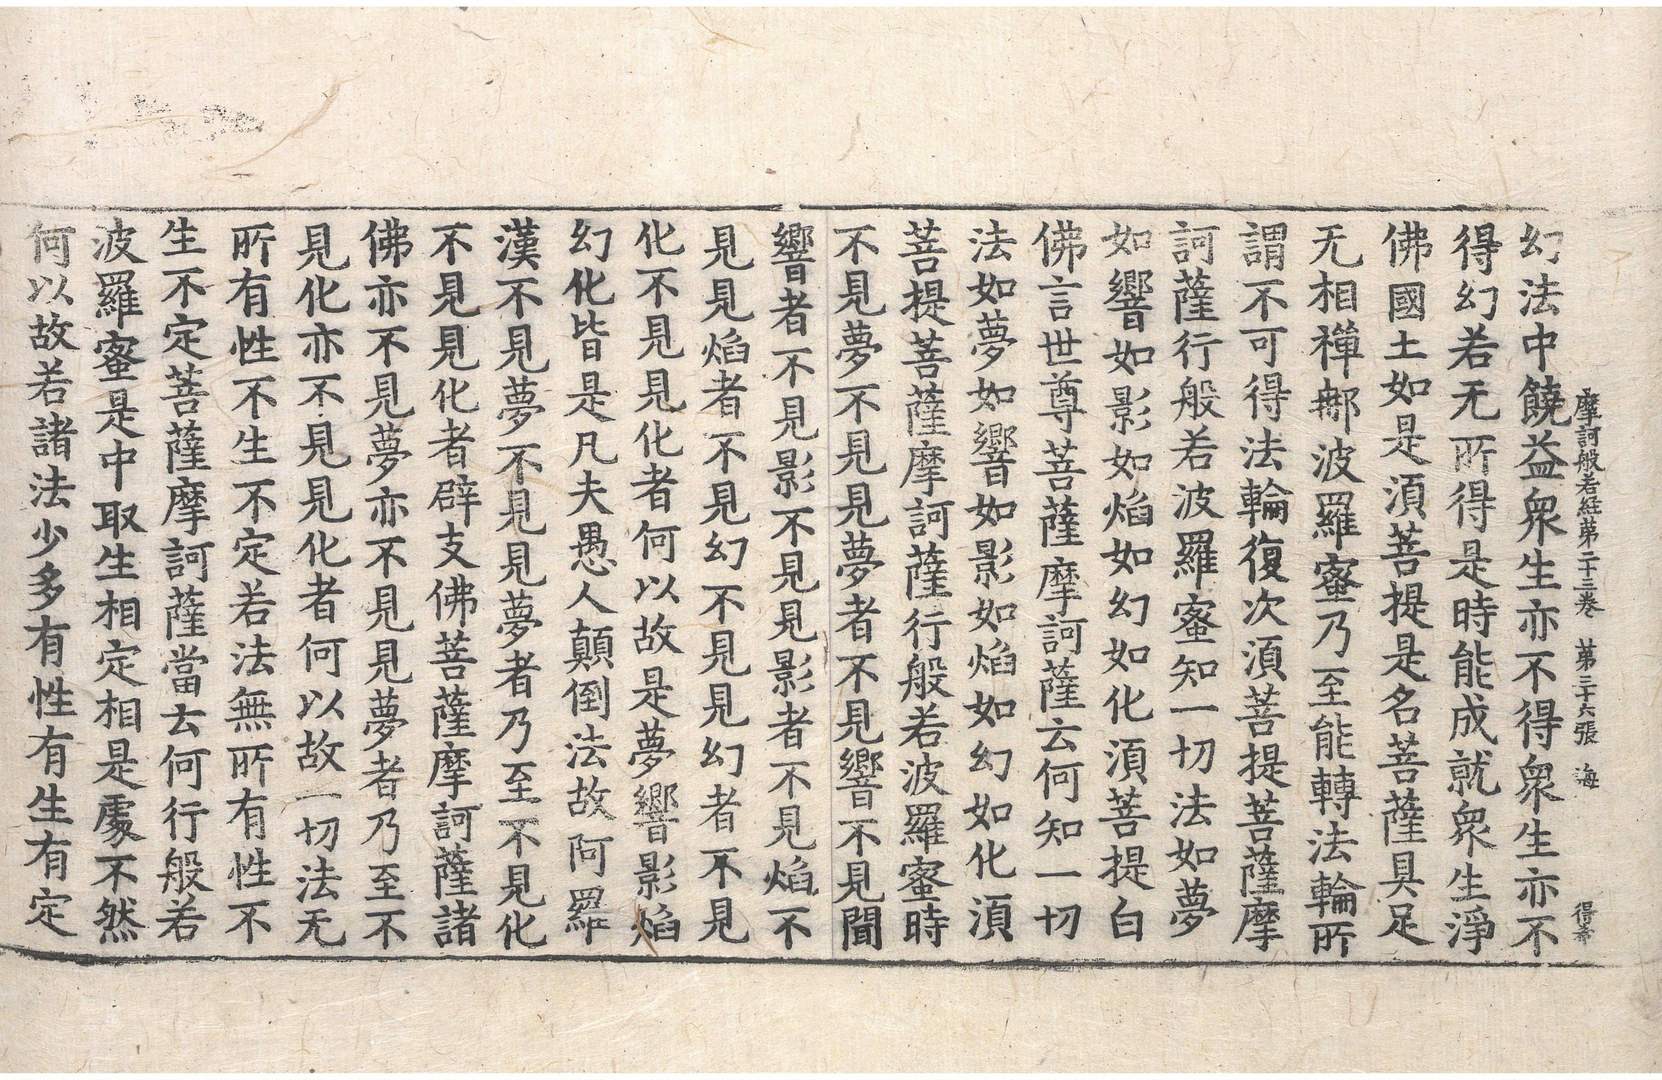 摩訶般若經第二十三卷　第三十六張　海
幻法中饒益衆生亦不得衆生亦不
得幻若无所得是時能成就衆生淨
佛國土如是湏菩提是名菩薩具足
无相禪𨙻波羅蜜乃至能轉法輪所
謂不可得法輪復次湏菩提菩薩摩
訶薩行般若波羅蜜知一切法如夢
如響如影如焰如幻如化湏菩提白
佛言世尊菩薩摩訶薩云何知一切
法如夢如響如影如焰如幻如化湏
菩提菩薩摩訶薩行般若波羅蜜時
不見夢不見見夢者不見響不見聞
響者不見影不見見影者不見焰不
見見焰者不見幻不見見幻者不見
化不見見化者何以故是夢響影焰
幻化皆是凡夫愚人顛倒法故阿羅
漢不見夢不見見夢者乃至不見化
不見見化者辟支佛菩薩摩訶薩諸
佛亦不見夢亦不見見夢者乃至不
見化亦不見見化者何以故一切法无
所有性不生不定若法無所有性不
生不定菩薩摩訶薩當云何行般若
波羅蜜是中取生相定相是處不然
何以故若諸法少多有性有生有定